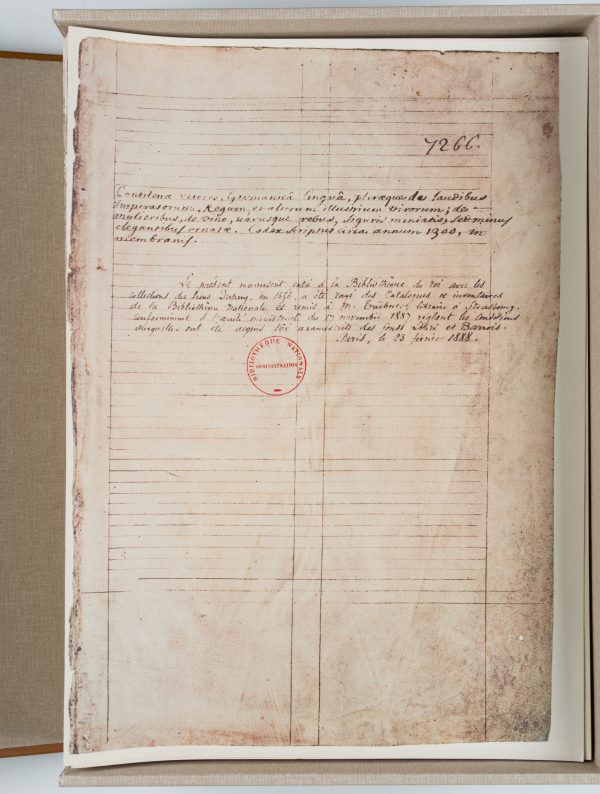 7266.
Cantilenæ veteres, Germanicâ linguâ, plæræque de laudibus
Imperatorum, Regum, et aliorum illustrium virorum; de
mulieribus, de vino, variisque rebus, figuris miniatis, sed minus
elegantibus ornatæ. Codex scriptus circa annum 1300, in
membranis.
Le présent manuscrit entré à la Bibliothèque du roi avec les
collections des frères Dupuy, en 1656, a été rayé des Catalogues et inventaires
de la Bibliothèque Nationale et remis à M. Trübner, libraire à Strasbourg,
conformément à l'arrêté ministériel du 17 novembre 1887 réglant les conditions
auxquelles ont été acquis 166 manuscrits des fonds Libri et Barrois.
Paris, le 23 février 1888.
BIBLIOTHÈQUE NATIONALE
ADMINISTRATION